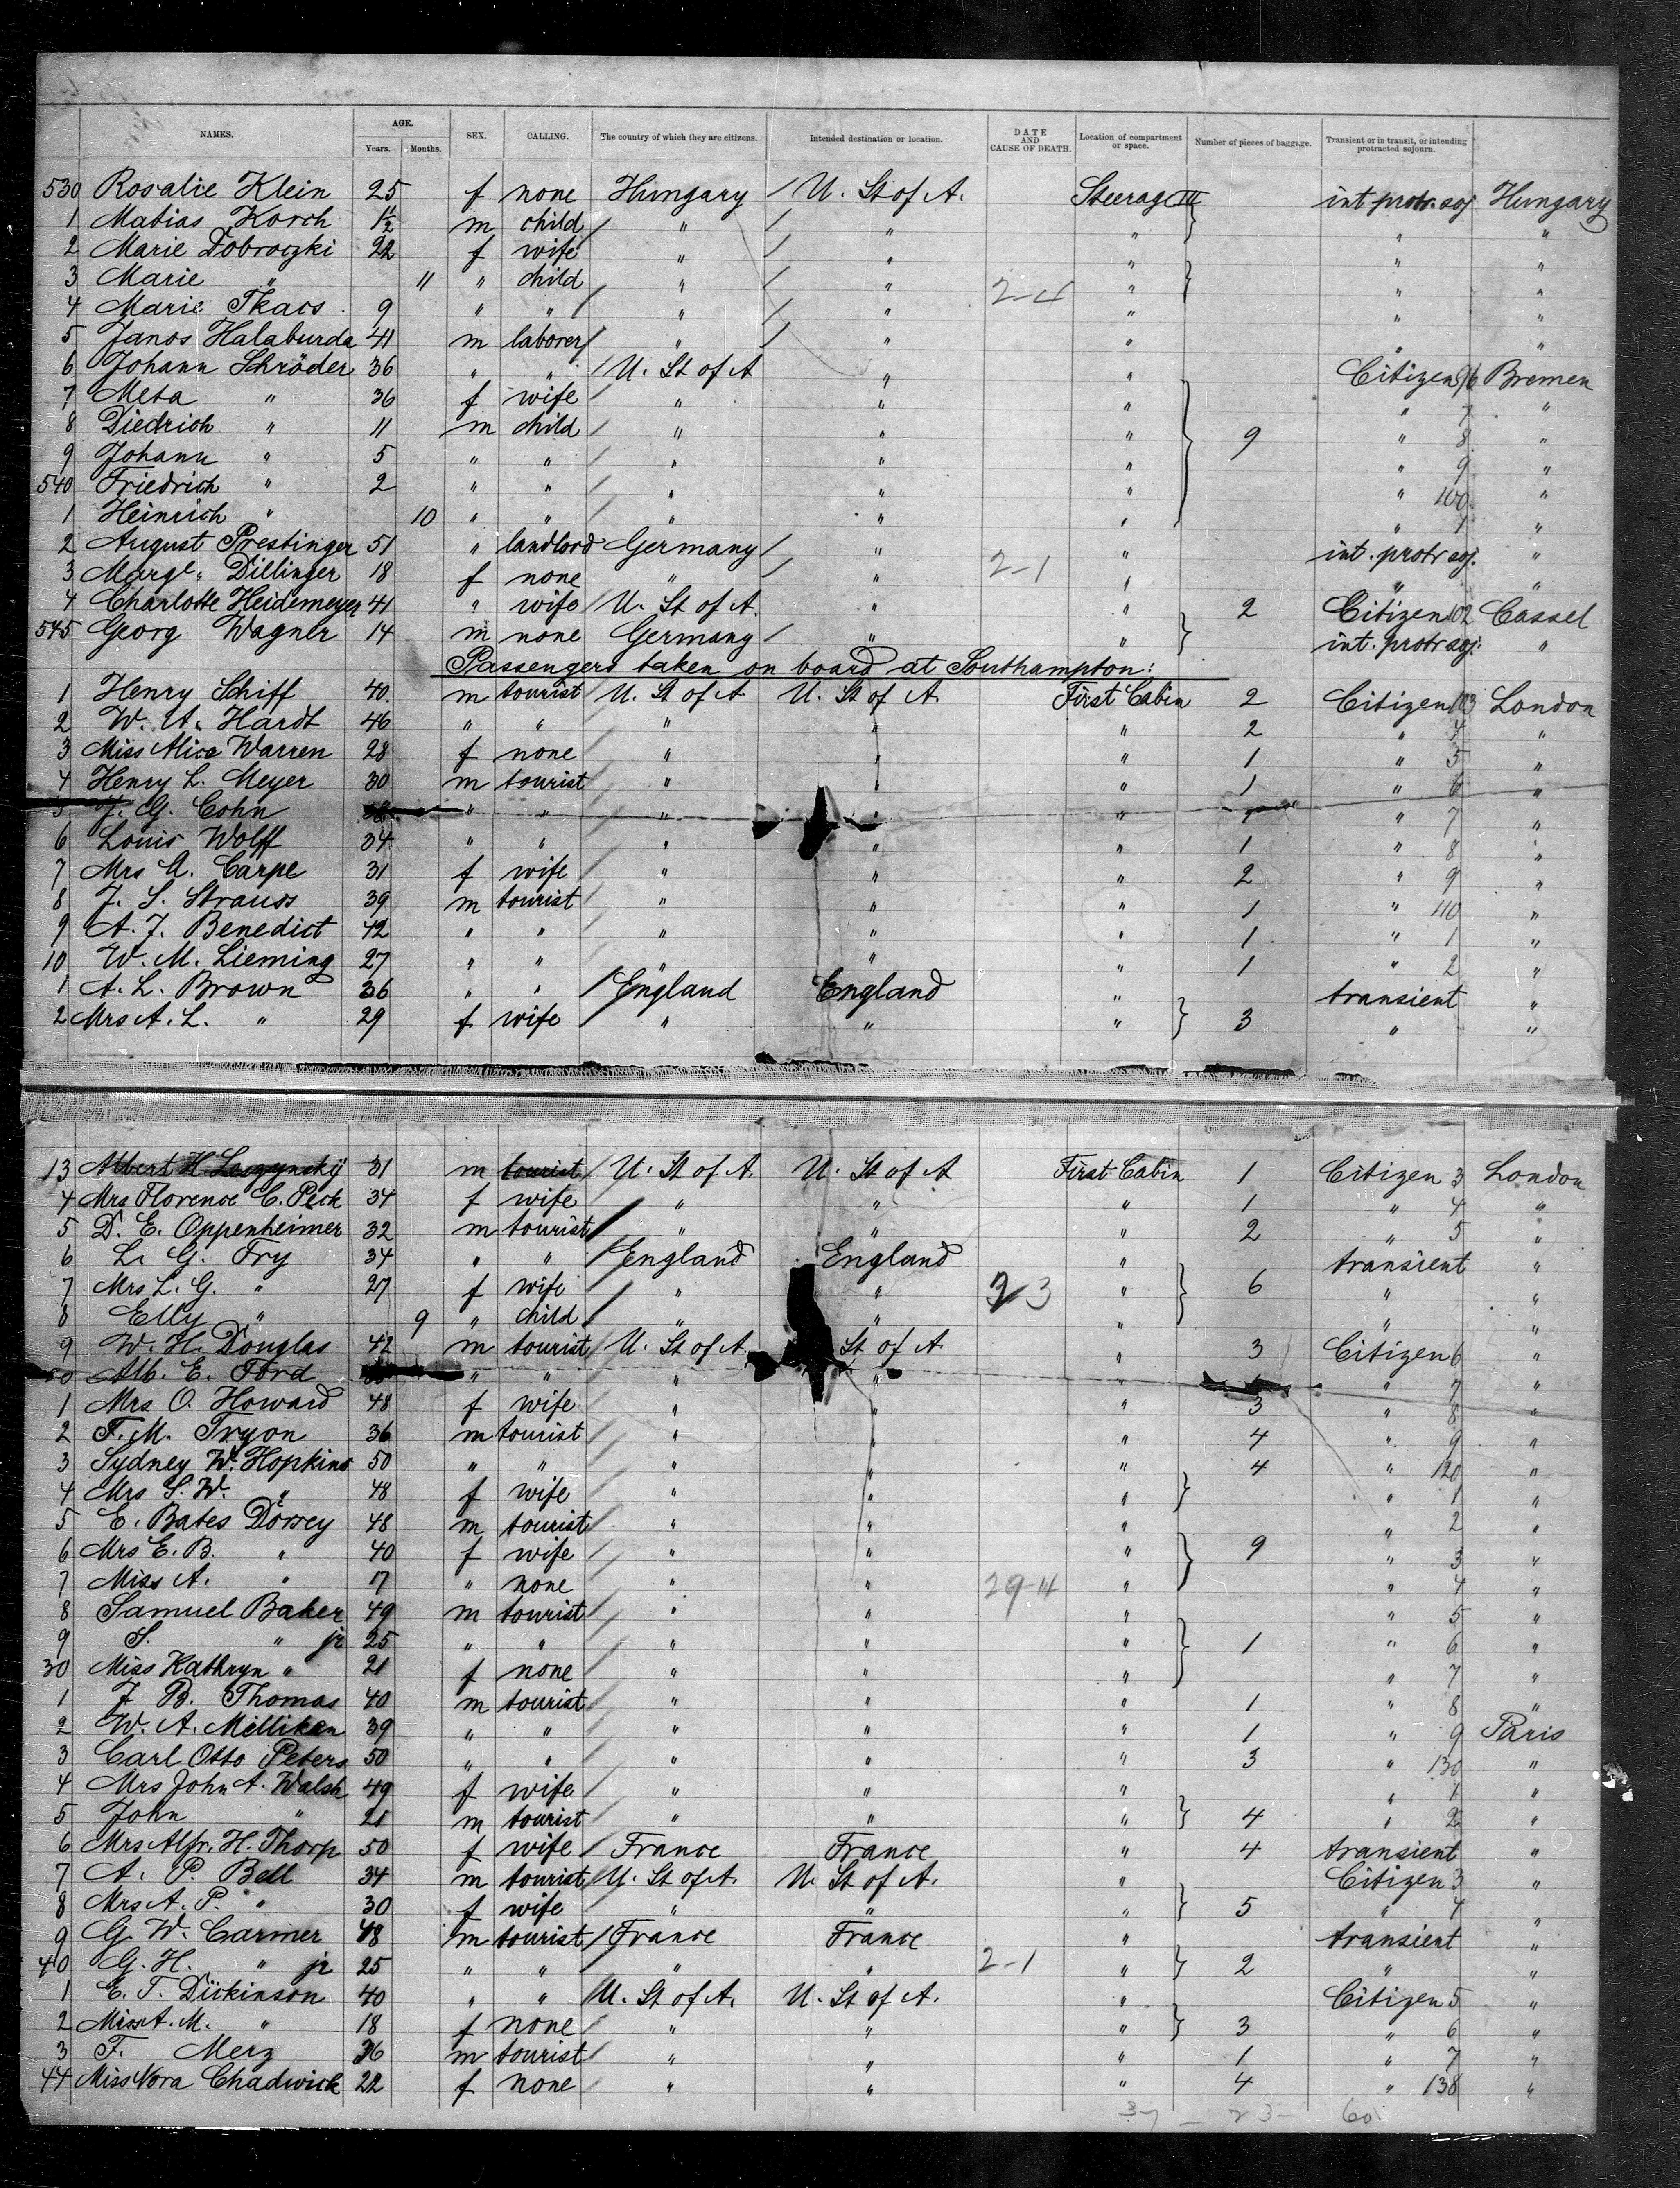 NAMES. AGE. Years. Months. SEX. CALLING. The country of which they are citizens. Intended destination or location. DATE AND CAUSE OF DEATH. Location of compartment or space. Number of pieces of baggage. Transient or in transit, or intending protracted sojourn.
530 Rosalie Klein 25 f none Hungary / U. St of A. Steerage III int. protr. soj Hungary
1 Matias Korch m child / " / " " " "
2 Marie Dobroczki 22 f wife " / " " " "
3 Marie " 11 " child " / " " " "
4 Marie Tkacs 9 " " / " / " 2-4 " " "
5 Janos Halaburda 41 m laborer / " / " " " "
6 Johann Schröder 36 " " / U. St of A " " Citizen 96 Bremen
7 Meta " 36 f wife / " " " " 7 "
8 Diedrich " 11 m child / " " " 9 " 8 "
9 Johann " 5 " " / " " " " 9 "
540 Friedrich " 2 " " / " " " " 100 "
1 Heinrich " 10 " " / " " " " 1 "
2 August Prestinger 51 " landlord Germany / " " int. protr soj. "
3 Marge. Dillinger 18 f none " / " 2-1 " " "
4 Charlotte Heidemeyer 41 " wife / U. St of A. " " 2 Citizen 102 Cassel
545 Georg Wagner 14 m none Germany / " " int. protr soj. "
Passengers taken on board at Southampton:
1 Henry Schiff 40. m tourist U. St of A U. St of A. First Cabin 2 Citizen 103 London
2 W. A. Hardt 46 " " / " " " 2 " 4 "
3 Miss Alice Warren 28 f none / " " " 1 " 5 "
4 Henry L. Meyer 30 m tourist / " " " 1 " 6 "
5 J. G. Cohn " " / " " " " 7 "
6 Louis Wolff 34 " " / " " " 1 " 8 "
7 Mrs A. Carpe 31 f wife / " " " 2 " 9 "
8 J. S. Strauss 39 m tourist / " " " 1 " 110 "
9 A. J. Benedict 42 " " / " " " 1 " 1 "
10 W. M. Lieming 27 " " / " " " 1 " 2 "
1 A. L. Brown 36 " " / England England " transient "
2 Mrs A. L. " 29 f wife / " " " 3 " "
13 Albert H Laszynsky 31 m tourist / U. St of A. U. St of A First Cabin 1 Citizen 3 London
4 Mrs Florence C. Peck 34 f wife / " " " 1 " 4 "
5 D. E. Oppenheimer 32 m tourist / " " " 2 " 5 "
6 L. G. Fry 34 " " / England England " transient "
7 Mrs L. G. " 27 f wife / " " 2 3 " 6 " "
8 Elly " 9 " child / " " " " "
9 W. H. Douglas 42 m tourist / U. St of A. St of A " 3 Citizen 6 "
Alb. E. Ford " " / " " " " 7 "
1 Mrs O. Howard 48 f wife / " " " 3 " 8 "
2 F. M. Tryon 36 m tourist / " " " 4 " 9 "
3 Sydney W. Hopkins 50 " " / " " " 4 " 120 "
4 Mrs S. W. " 48 f wife / " " " " 1 "
5 E. Bates Dorsey 48 m tourist / " " " " 2 "
6 Mrs E. B. " 40 f wife / " " " 9 " 3 "
7 Miss A. " 17 " none / " " 29-11 " " 4 "
8 Samuel Baker 49 m tourist / " " " " 5 "
9 S. " jr 25 " " / " " " 1 " 6 "
30 Miss Kathryn " 21 f none / " " " " 7 "
1 J B. Thomas 40 m tourist / " " " 1 " 8 "
2 W. A. Milliken 39 " " / " " " 1 " 9 Paris
3 Carl Otto Peters 50 " " / " " " 3 " 130 "
4 Mrs John A. Walsh 49 f wife / " " " " 1 "
5 John " 21 m tourist / " " " 4 " 2 "
6 Mrs Alfr. H. Thorp 50 f wife / France France " 4 transient "
7 A. P. Bell 34 m tourist / U. St of A. U. St of A. " Citizen 3 "
8 Mrs A. P. " 30 f wife / " " " 5 " 4 "
9 G. W. Carmer 48 m tourist / France France " transient "
40 G. H. " jr 25 " " " " 2-1 " 2 " "
1 E. T. Dickinson 40 " " / U. St of A. U. St of A. " Citizen 5 "
2 Miss A. M. " 18 f none / " " " 3 " 6 "
3 F. Merz 26 m tourist / " " " 1 " 7 "
44 Miss Nora Chadwick 22 f none / " " " 4 " 138 "
37 - 23 - 60